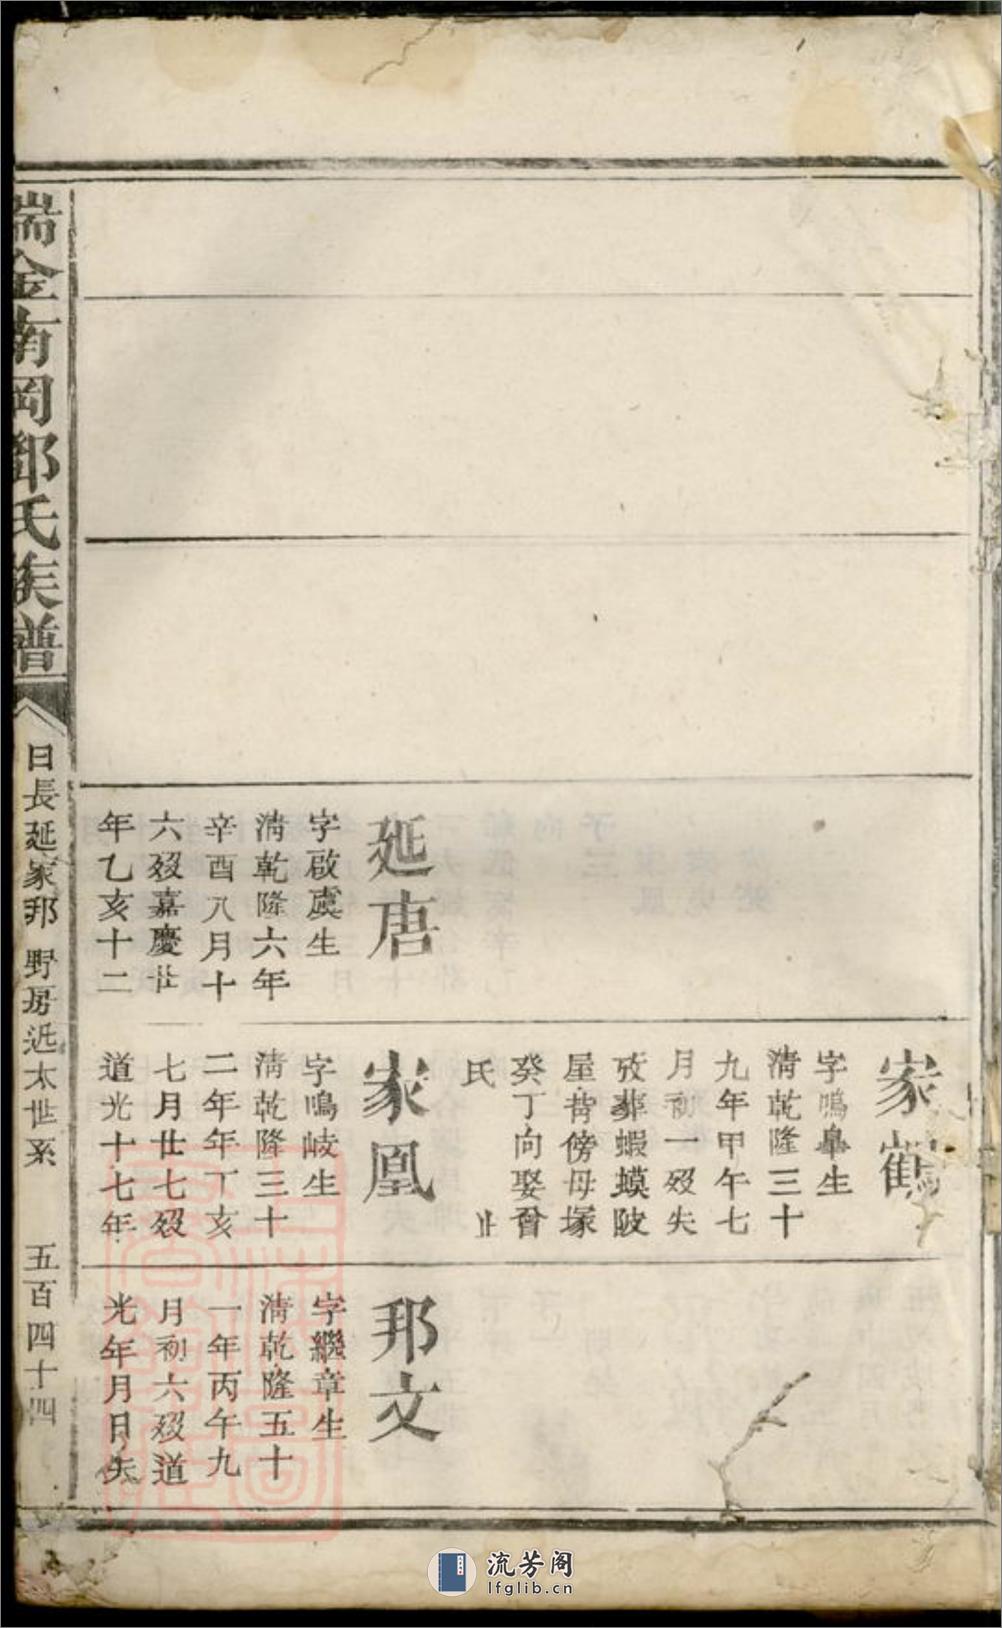 延唐
字啟虞生
淸乾隆六年
辛酉八月十
六歿嘉慶廿
年乙亥十二
家鶴
字鳴臯生
淸乾隆三十
九年甲午七
月初一歿失
攷葬蝦蟆陂
屋背傍母塚
癸丁向娶曾
氏 止
家凰
字鳴岐生
淸乾隆三十
二年年丁亥
七月廿七歿
道光十七年
邦文
字繼章生
淸乾隆五十
一年丙午九
月初六歿道
光年月日失
瑞金南岡鄒氏族譜
日長延家邦 野房近太世系 五百四十四
流芳阁
lfglib.cn